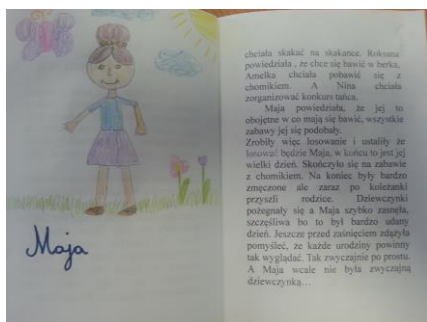 Maja
chciała skakać na skakance. Roksana
powiedziała , że chce się bawić w berka,
Amelka chciała pobawić się z
chomikiem. A Nina chciała
zorganizować konkurs tańca.
Maja powiedziała, że jej to
obojętne w co mają się bawić, wszystkie
zabawy jej się podobały.
Zrobiły więc losowanie i ustaliły że
losować będzie Maja, w końcu to jest jej
wielki dzień. Skończyło się na zabawie
z chomikiem. Na koniec były bardzo
zmęczone ale zaraz po koleżanki
przyszli rodzice. Dziewczynki
pożegnały się a Maja szybko zasnęła,
szczęśliwa bo to był bardzo udany
dzień. Jeszcze przed zaśnięciem zdążyła
pomyśleć, że każde urodziny powinny
tak wyglądać. Tak zwyczajnie po prostu.
A Maja wcale nie była zwyczajną
dziewczynką…